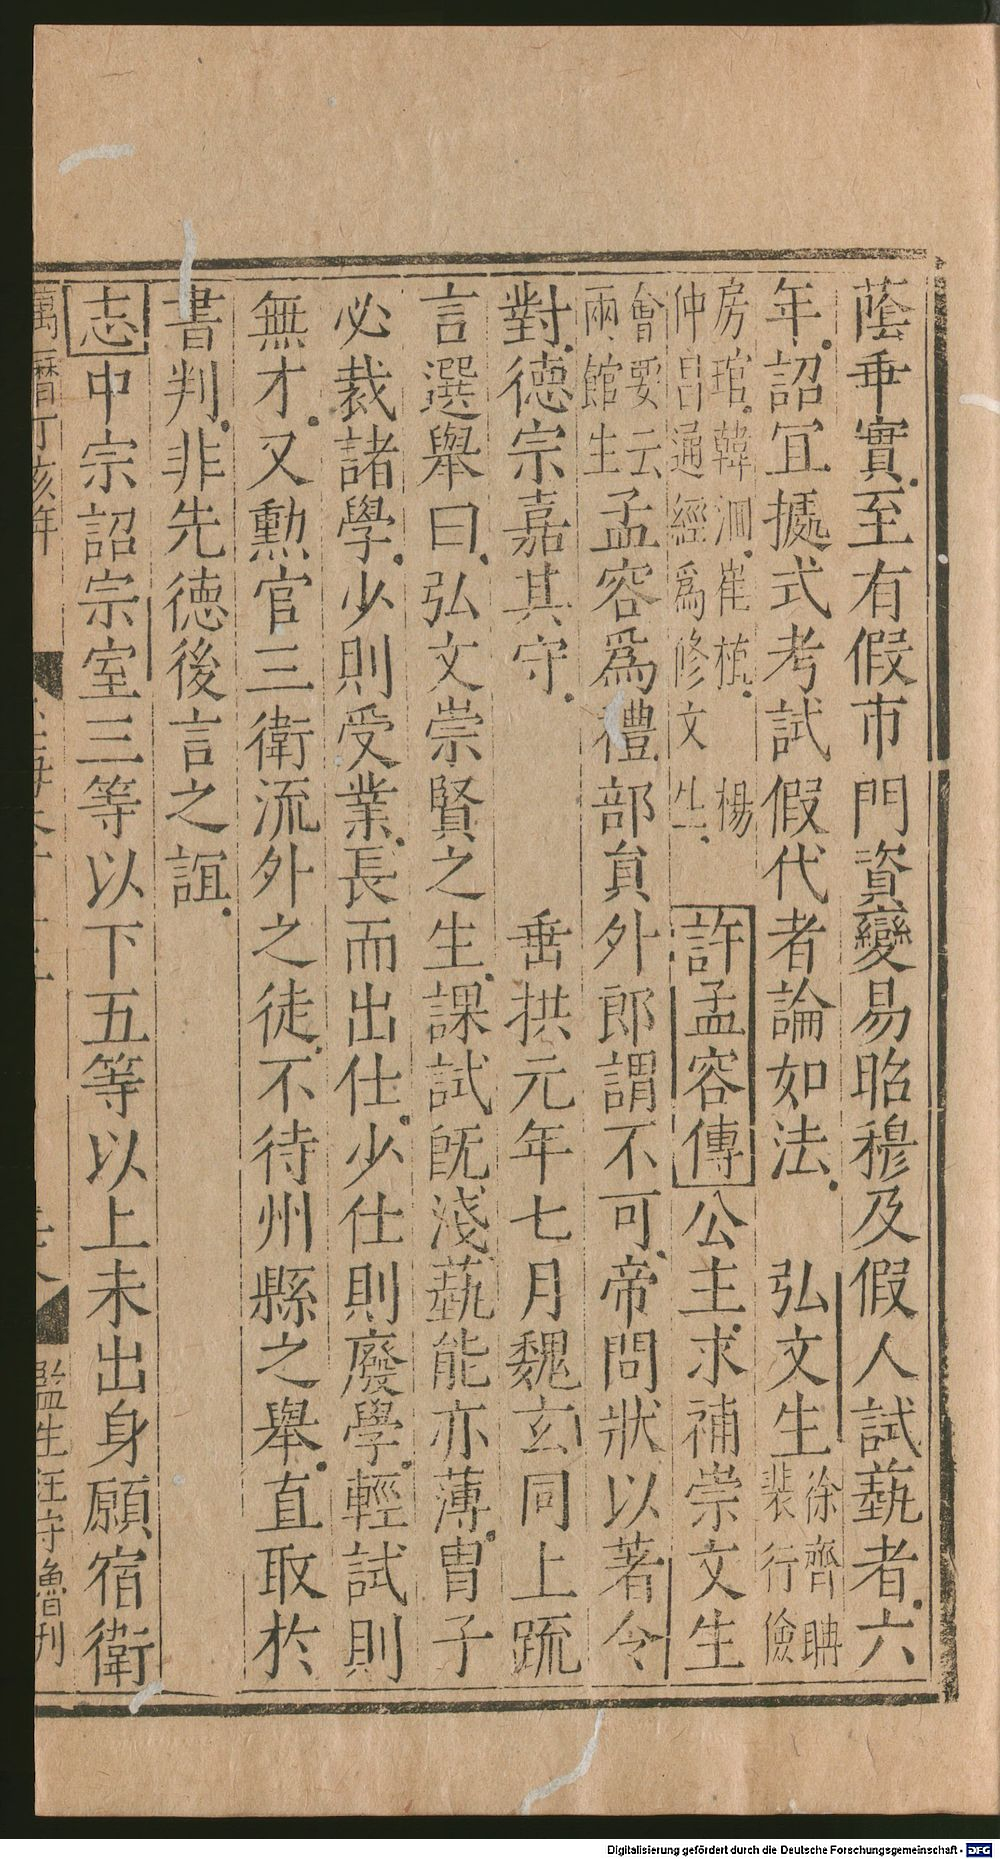 蔭乖實至有假市門資變易昭穆及假人試藝者六
年詔宜據式考試假代者論如法　弘文生徐齊聃裴行儉
房琯韓洄崔植楊仲昌通經爲修文生　許孟容傳公主求補崇文生
會要云兩館生孟容爲禮部員外郎謂不可帝問狀以著令
對德宗嘉其守　垂拱元年七月魏玄同上疏
言選舉曰弘文崇賢之生課試旣淺藝能亦薄冑子
必裁諸學少則受業長而出仕少仕則廢學輕試則
無才又勳官三衛流外之徒不待州縣之舉直取於
書判非先德後言之誼
志中宗詔宗室三等以下五等以上未出身願宿衛
萬曆丁亥年　監生汪守魯刊
Digitalisierung gefördert durch die Deutsche Forschungsgemeinschaft - DFG